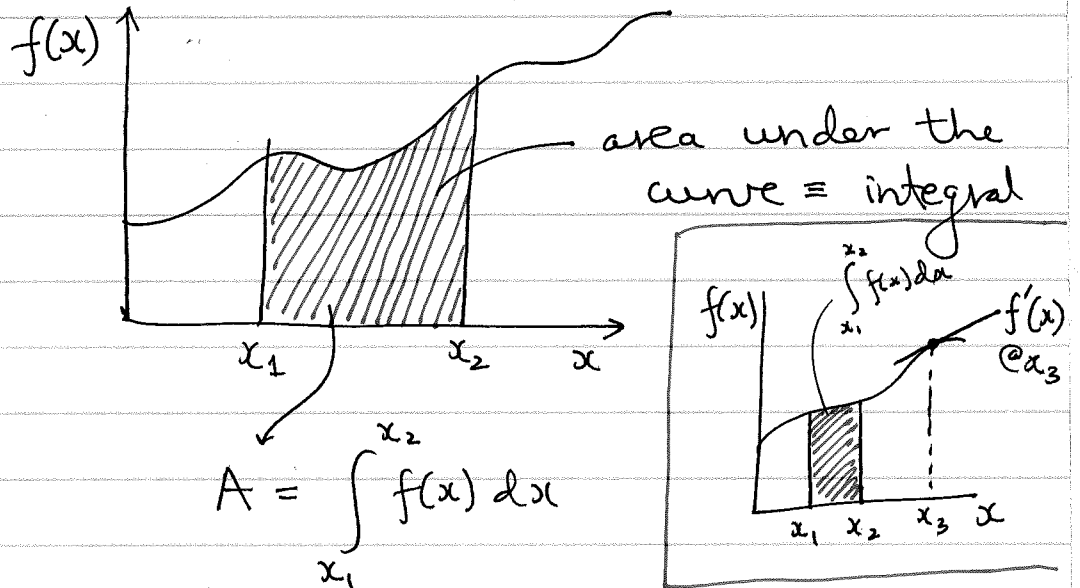 f(x)
area under the
curve ≡ integral
x₁ x₂ x
A = ∫ₓ₁ˣ² f(x) dx
∫ₓ₁ˣ² f(x) dx
f(x)
f′(x)
@x₃
x₁ x₂ x₃ x